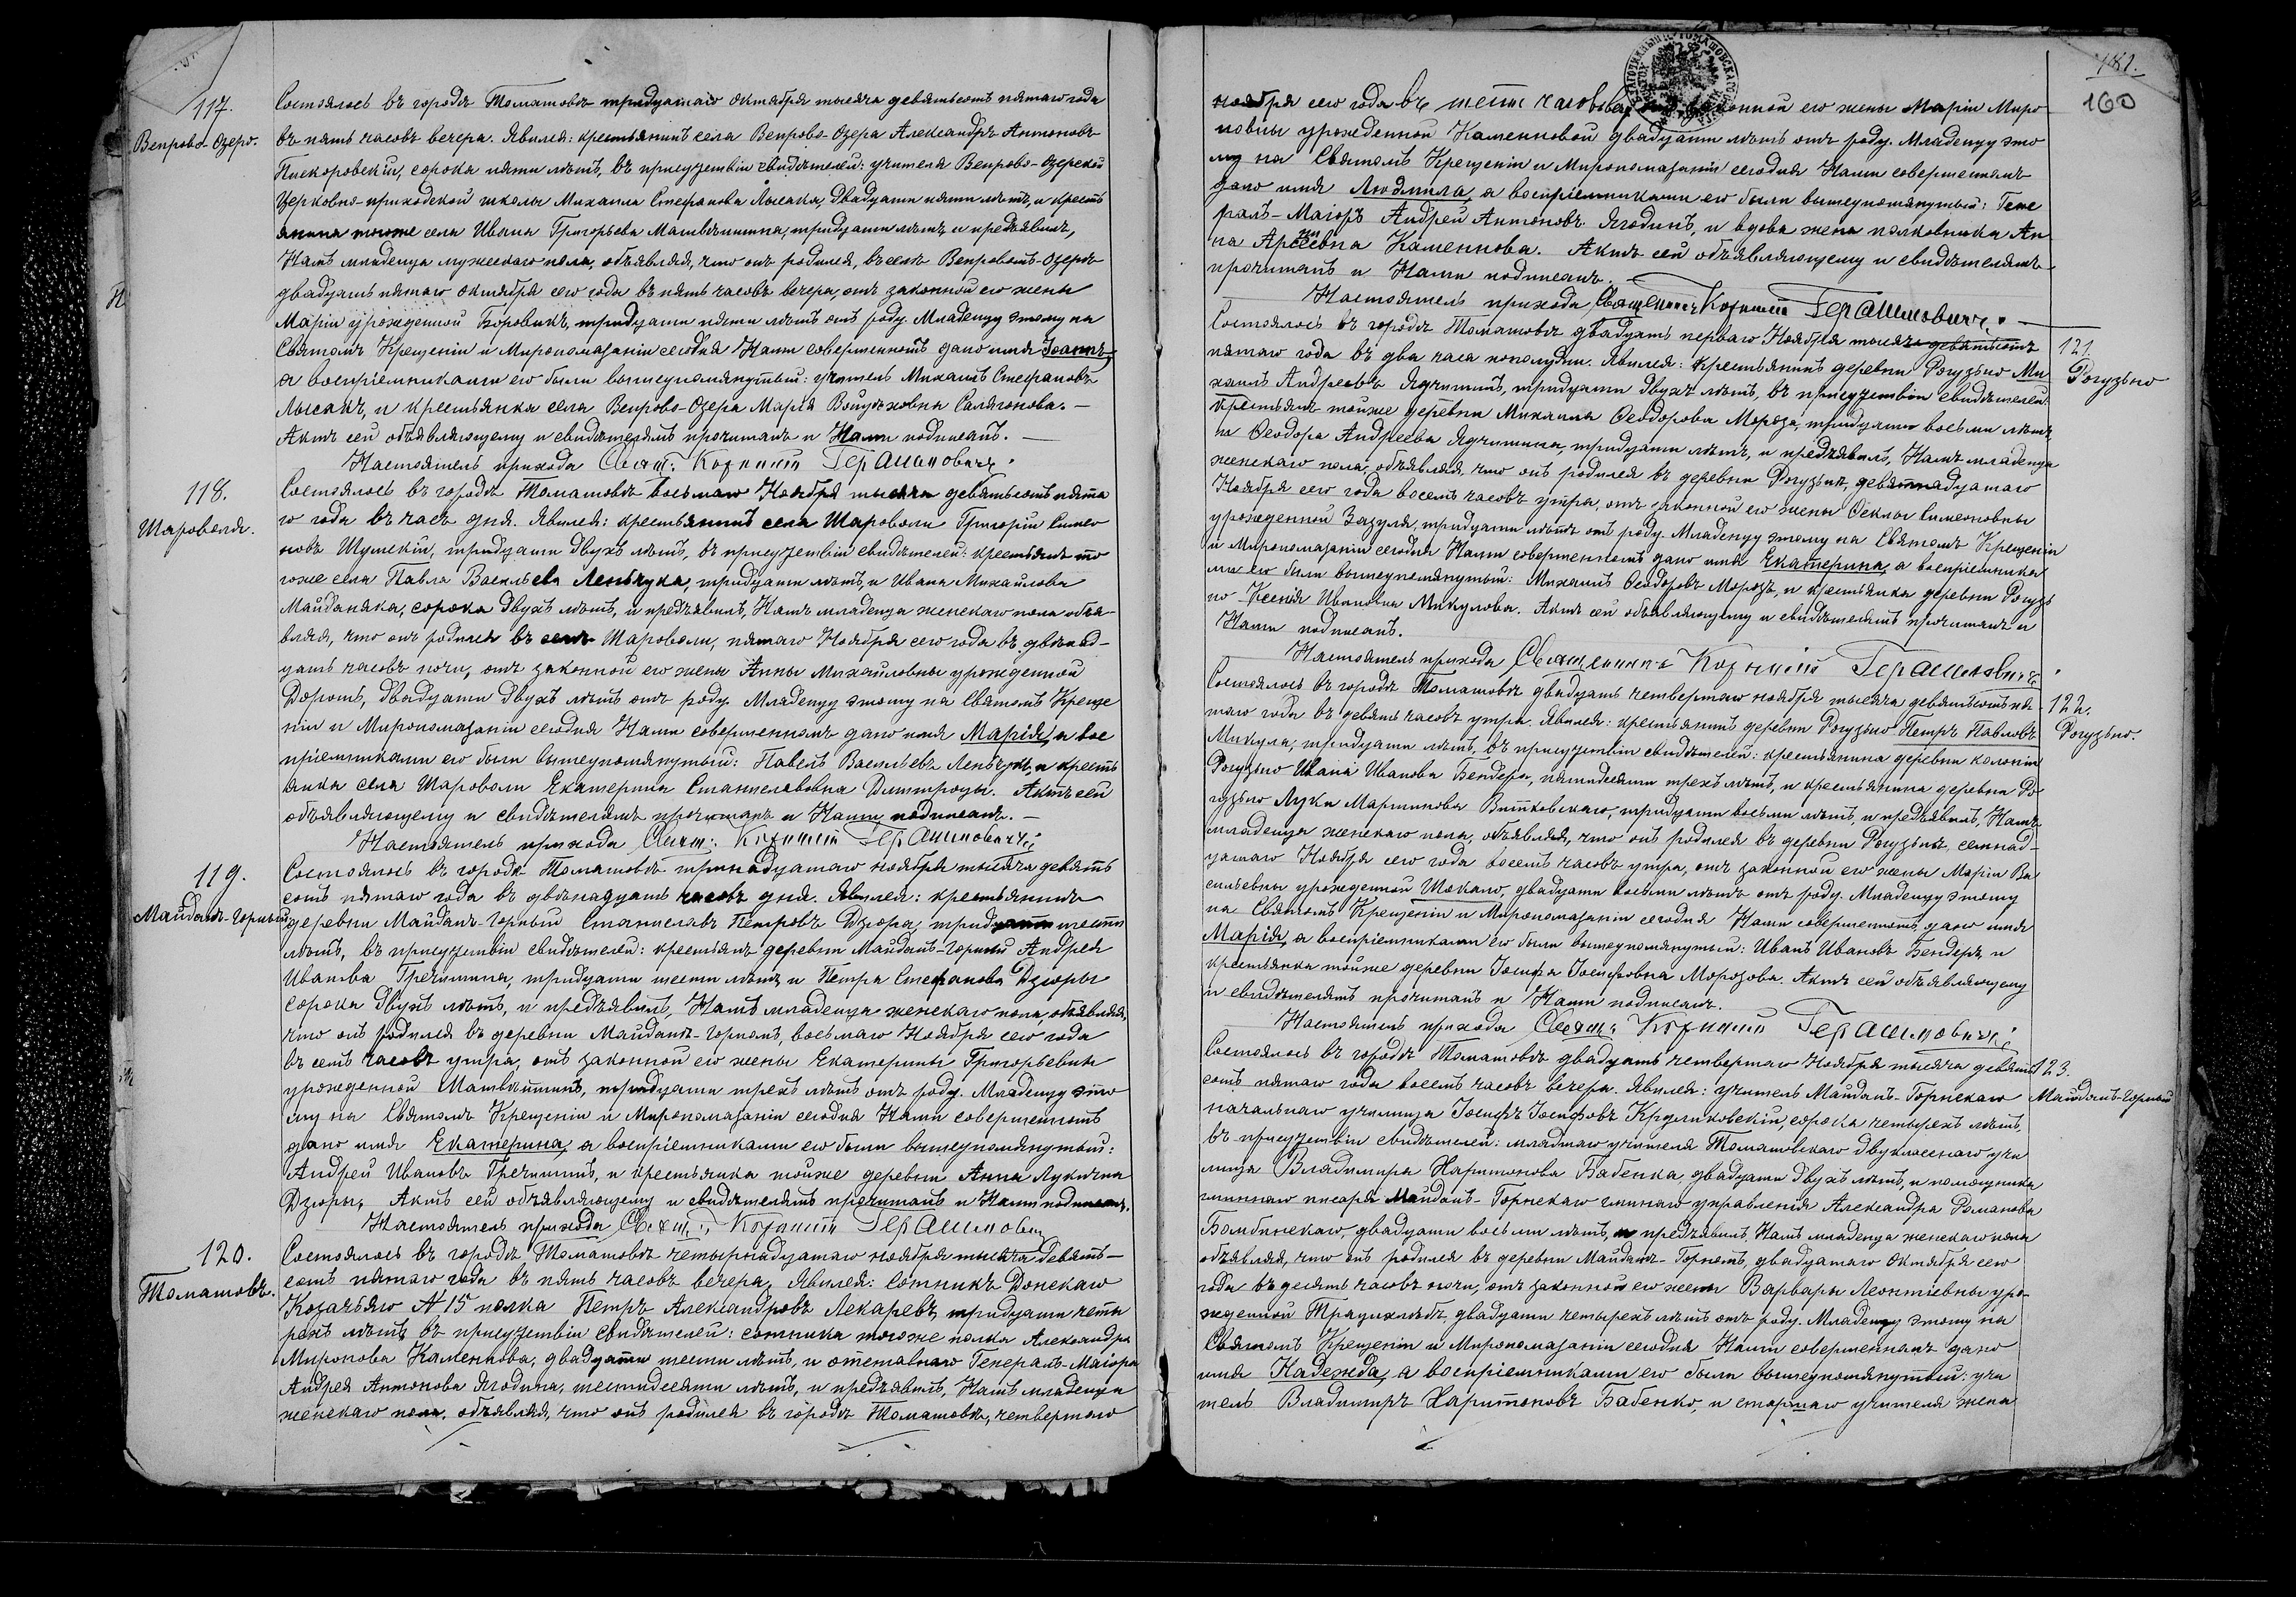 117.
Венрово-Озеро.
Состоялось въ городѣ Томашовѣ тридцатаго Октября тысяча девятьсотъ пятаго года
въ пять часовъ вечера. Явился: крестьянинъ села Венрово-Озера Александръ Антоновъ
Пискоровскій, сорока пяти лѣтъ, въ присутствіи свидѣтелей: учителя Венрово-Озерской
Церковно-приходской школы Михаила Стефанова Лысака, двадцати пяти лѣтъ, и кресть
янина тогоже села Ивана Григорьева Матвѣишина, тридцати лѣтъ и предъявилъ,
Намъ младенца мужескаго пола, объявляя, что онъ родился, въ селѣ Венровомъ-Озерѣ
двадцать пятаго Октября сего года въ пять часовъ вечера, отъ законной его жены
Маріи урожденной Боровикъ, тридцати пяти лѣтъ отъ роду. Младенцу этому на
Святомъ Крещеніи и Миропомазаніи сегодня Нами совершенномъ дано имя Іоаннъ,
а воспріемниками его были вышеупомянутый: учитель Михаилъ Стефановъ
Лысакъ, и крестьянка села Венрово-Озера Марія Войцѣховна Салягонова. —
Актъ сей объявляющему и свидѣтелямъ прочитанъ и Нами подписанъ. —
Настоятель прихода Свящ. Корнилій Герашимовичъ.
118.
Шароволя.
Состоялось въ городѣ Томашовѣ восьмаго Ноября тысяча девятьсотъ пята
го года въ часъ дня. Явился: крестьянинъ села Шароволи Григорій Симео
новъ Шумскій, тридцати двухъ лѣтъ, въ присутствіи свидѣтелей: крестьянъ то
гоже села Павла Васильева Леньчука, тридцати лѣтъ, и Ивана Михайлова
Майданяка, сорока двухъ лѣтъ, и предъявилъ, Намъ младенца женскаго пола объя
вляя, что онъ родился въ селѣ Шароволи, пятаго Ноября сего года въ двѣнад-
цать часовъ ночи, отъ законной его жены Анны Михайловны урожденной
Дорошъ, двадцати двухъ лѣтъ отъ роду. Младенцу этому на Святомъ Креще
ніи и Миропомазаніи сегодня Нами совершенномъ дано имя Марія, а вос
пріемниками его были вышеупомянутый: Павелъ Васильевъ Леньчукъ, и кресть
янка села Шароволи Екатерина Станиславовна Дмитроцы. Актъ сей
объявляющему и свидѣтелямъ прочитанъ и Нами подписанъ. —
Настоятель прихода Свящ. Корнилій Герашимовичъ.
119.
Майданъ-Горный
Состоялось въ городѣ Томашовѣ тринадцатаго ноября тысяча девять
сотъ пятаго года въ двѣнадцать часовъ дня. Явился: крестьянинъ
деревни Майданъ-Горный Станиславъ Петровъ Дзюра, тридцати шести
лѣтъ, въ присутствіи свидѣтелей: крестьянъ деревни Майданъ-Горный Андрея
Иванова Гречишина, тридцати шести лѣтъ и Петра Стефанова Дзюры
сорока двухъ лѣтъ, и предъявилъ, Намъ младенца женскаго пола, объявляя,
что онъ родился въ деревни Майданѣ-Горномъ, восьмаго Ноября сего года
въ семь часовъ утра, отъ законной его жены Екатерины Григорьевны
урожденной Матвѣишинъ, тридцати трехъ лѣтъ отъ роду. Младенцу это
му на Святомъ Крещеніи и Миропомазаніи сегодня Нами совершенномъ
дано имя Екатерина, а воспріемниками его были вышеупомянутый:
Андрей Ивановъ Гречишинъ, и крестьянка тойже деревни Анна Лукична
Дзюры, Актъ сей объявляющему и свидѣтелямъ прочитанъ и Нами подписанъ.
Настоятель прихода Свящ. Корнилій Герашимович
120.
Томашовъ.
Состоялось въ городѣ Томашовѣ четырнадцатаго ноября тысяча девять-
сотъ пятаго года въ пять часовъ вечера, Явился: Сотникъ Донскаго
Козачьяго № 15 полка Петръ Александровъ Лекаревъ, тридцати четы
рехъ лѣтъ въ присутствіи свидѣтелей: сотника тогоже полка Александра
Миронова Каменнова, двадцати шести лѣтъ, и отставнаго Генералъ-Маіора
Андрея Антонова Ягодина, шестидесяти лѣтъ, и предъявилъ, Намъ младенца
женскаго пола, объявляя, что онъ родился въ городѣ Томашовѣ, четвертаго
181.
160
ноября сего года въ шесть часовъ законной его жены Маріи Миро
новны урожденной Каменновой двадцати лѣтъ отъ роду. Младенцу это
му на Святомъ Крещеніи и Миропомазаніи сегодня Нами совершенномъ
дано имя Людмила, а воспріемниками его были вышеупомянутый: Гене
ралъ-Маіоръ Андрей Антоновъ Ягодинъ, и вдова жена полковника Ан
на Каменнова. Актъ сей объявляющему и свидѣтелямъ
прочитанъ и Нами подписанъ. —
Настоятель прихода Священникъ Корнилій Герашимовичъ. —
121.
Рогузьно
Состоялось въ городѣ Томашовѣ двадцать перваго Ноября тысяча девятьсотъ
пятаго года въ два часа пополудни. Явился: Крестьянинъ деревни Рогузьно Ми
хаилъ Андреевъ Ядчишинъ, тридцати двухъ лѣтъ, въ присутствіи свидѣтелей:
крестьянъ тойже деревни Михаила Ѳеодорова Мороза, тридцати восьми лѣтъ,
и Ѳеодора Андреева Ядчишина, тридцати лѣтъ, и предъявилъ, Намъ младенца
женскаго пола, объявляя, что онъ родился въ деревни Рогузьнѣ, девятнадцатаго
Ноября сего года восемь часовъ утра, отъ законной его жены Ѳеклы Симеоновны
урожденной Зазуля, тридцати лѣтъ отъ роду. Младенцу этому на Святомъ Крещеніи
и Миропомазаніи сегодня Нами совершенномъ дано имя Екатерина, а воспріемника
ми его были вышеупомянутый: Михаилъ Ѳеодоровъ Морозъ, и крестьянка деревни Рогузь
но Ксенія Ивановна Микулова. Актъ сей объявляющему и свидѣтелямъ прочитанъ и
Нами подписанъ.
Настоятель прихода Священникъ Корнилій Герашимовичъ
122.
Рогузьно.
Состоялось въ городѣ Томашовѣ двадцать четвертаго ноября тысяча девятьсотъ пя
таго года въ девять часовъ утра. Явился: крестьянинъ деревни Рогузьно Петръ Павловъ
Микула, тридцати лѣтъ, въ присутствіи свидѣтелей: крестьянина деревни колоніи
Рогузьно Ивана Иванова Бендера, пятидесяти трехъ лѣтъ, и крестьянина деревни Ро
гузьно Луки Мартинова Витковскаго, тридцати восьми лѣтъ, и предъявилъ, Намъ
младенца женскаго пола, объявляя, что онъ родился въ деревни Рогузьнѣ, семнад-
цатаго Ноября сего года восемь часовъ утра, отъ законной его жены Маріи Ва
сильевны урожденной Шокало, двадцати восьми лѣтъ отъ роду. Младенцу этому
на Святомъ Крещеніи и Миропомазаніи сегодня Нами совершенномъ дано имя
Марія, а воспріемниками его были вышеупомянутый: Иванъ Ивановъ Бендеръ, и
крестьянка тойже деревни Іосифа Іосифовна Морозова. Актъ сей объявляющему
и свидѣтелямъ прочитанъ и Нами подписанъ.
Настоятель прихода Свящ. Корнилій Герашимовичъ.
123.
Майданъ-Горный
Состоялось въ городѣ Томашовѣ двадцать четвертаго Ноября тысяча девять
сотъ пятаго года восемь часовъ вечера. Явился: учитель Майданъ-Горнскаго
начальнаго училища Іосифъ Іосифовъ Круликовскій, сорока четырехъ лѣтъ,
въ присутствіи свидѣтелей: младшаго учителя Томашовскаго двухклассного учи
лища Владиміра Харитонова Бабенка двадцати двухъ лѣтъ, и помощника
гминнаго писаря Майданъ-Горнскаго гминаго управленія Александра Романова
Бомбинскаго, двадцати восьми лѣтъ, и предъявилъ, Намъ младенца женскаго пола
объявляя, что онъ родился въ деревни Майданѣ-Горномъ, двадцатаго Октября сего
года въ десять часовъ ночи, отъ законной его жены Варвары Леонтіевны уро-
жденной Трацихлѣбъ, двадцати четырехъ лѣтъ отъ роду. Младенцу этому на
Святомъ Крещеніи и Миропомазаніи сегодня Нами совершенномъ дано
имя Надежда, а воспріемниками его были вышеупомянутый: учи
тель Владиміръ Харитоновъ Бабенко, и старшаго учителя жена